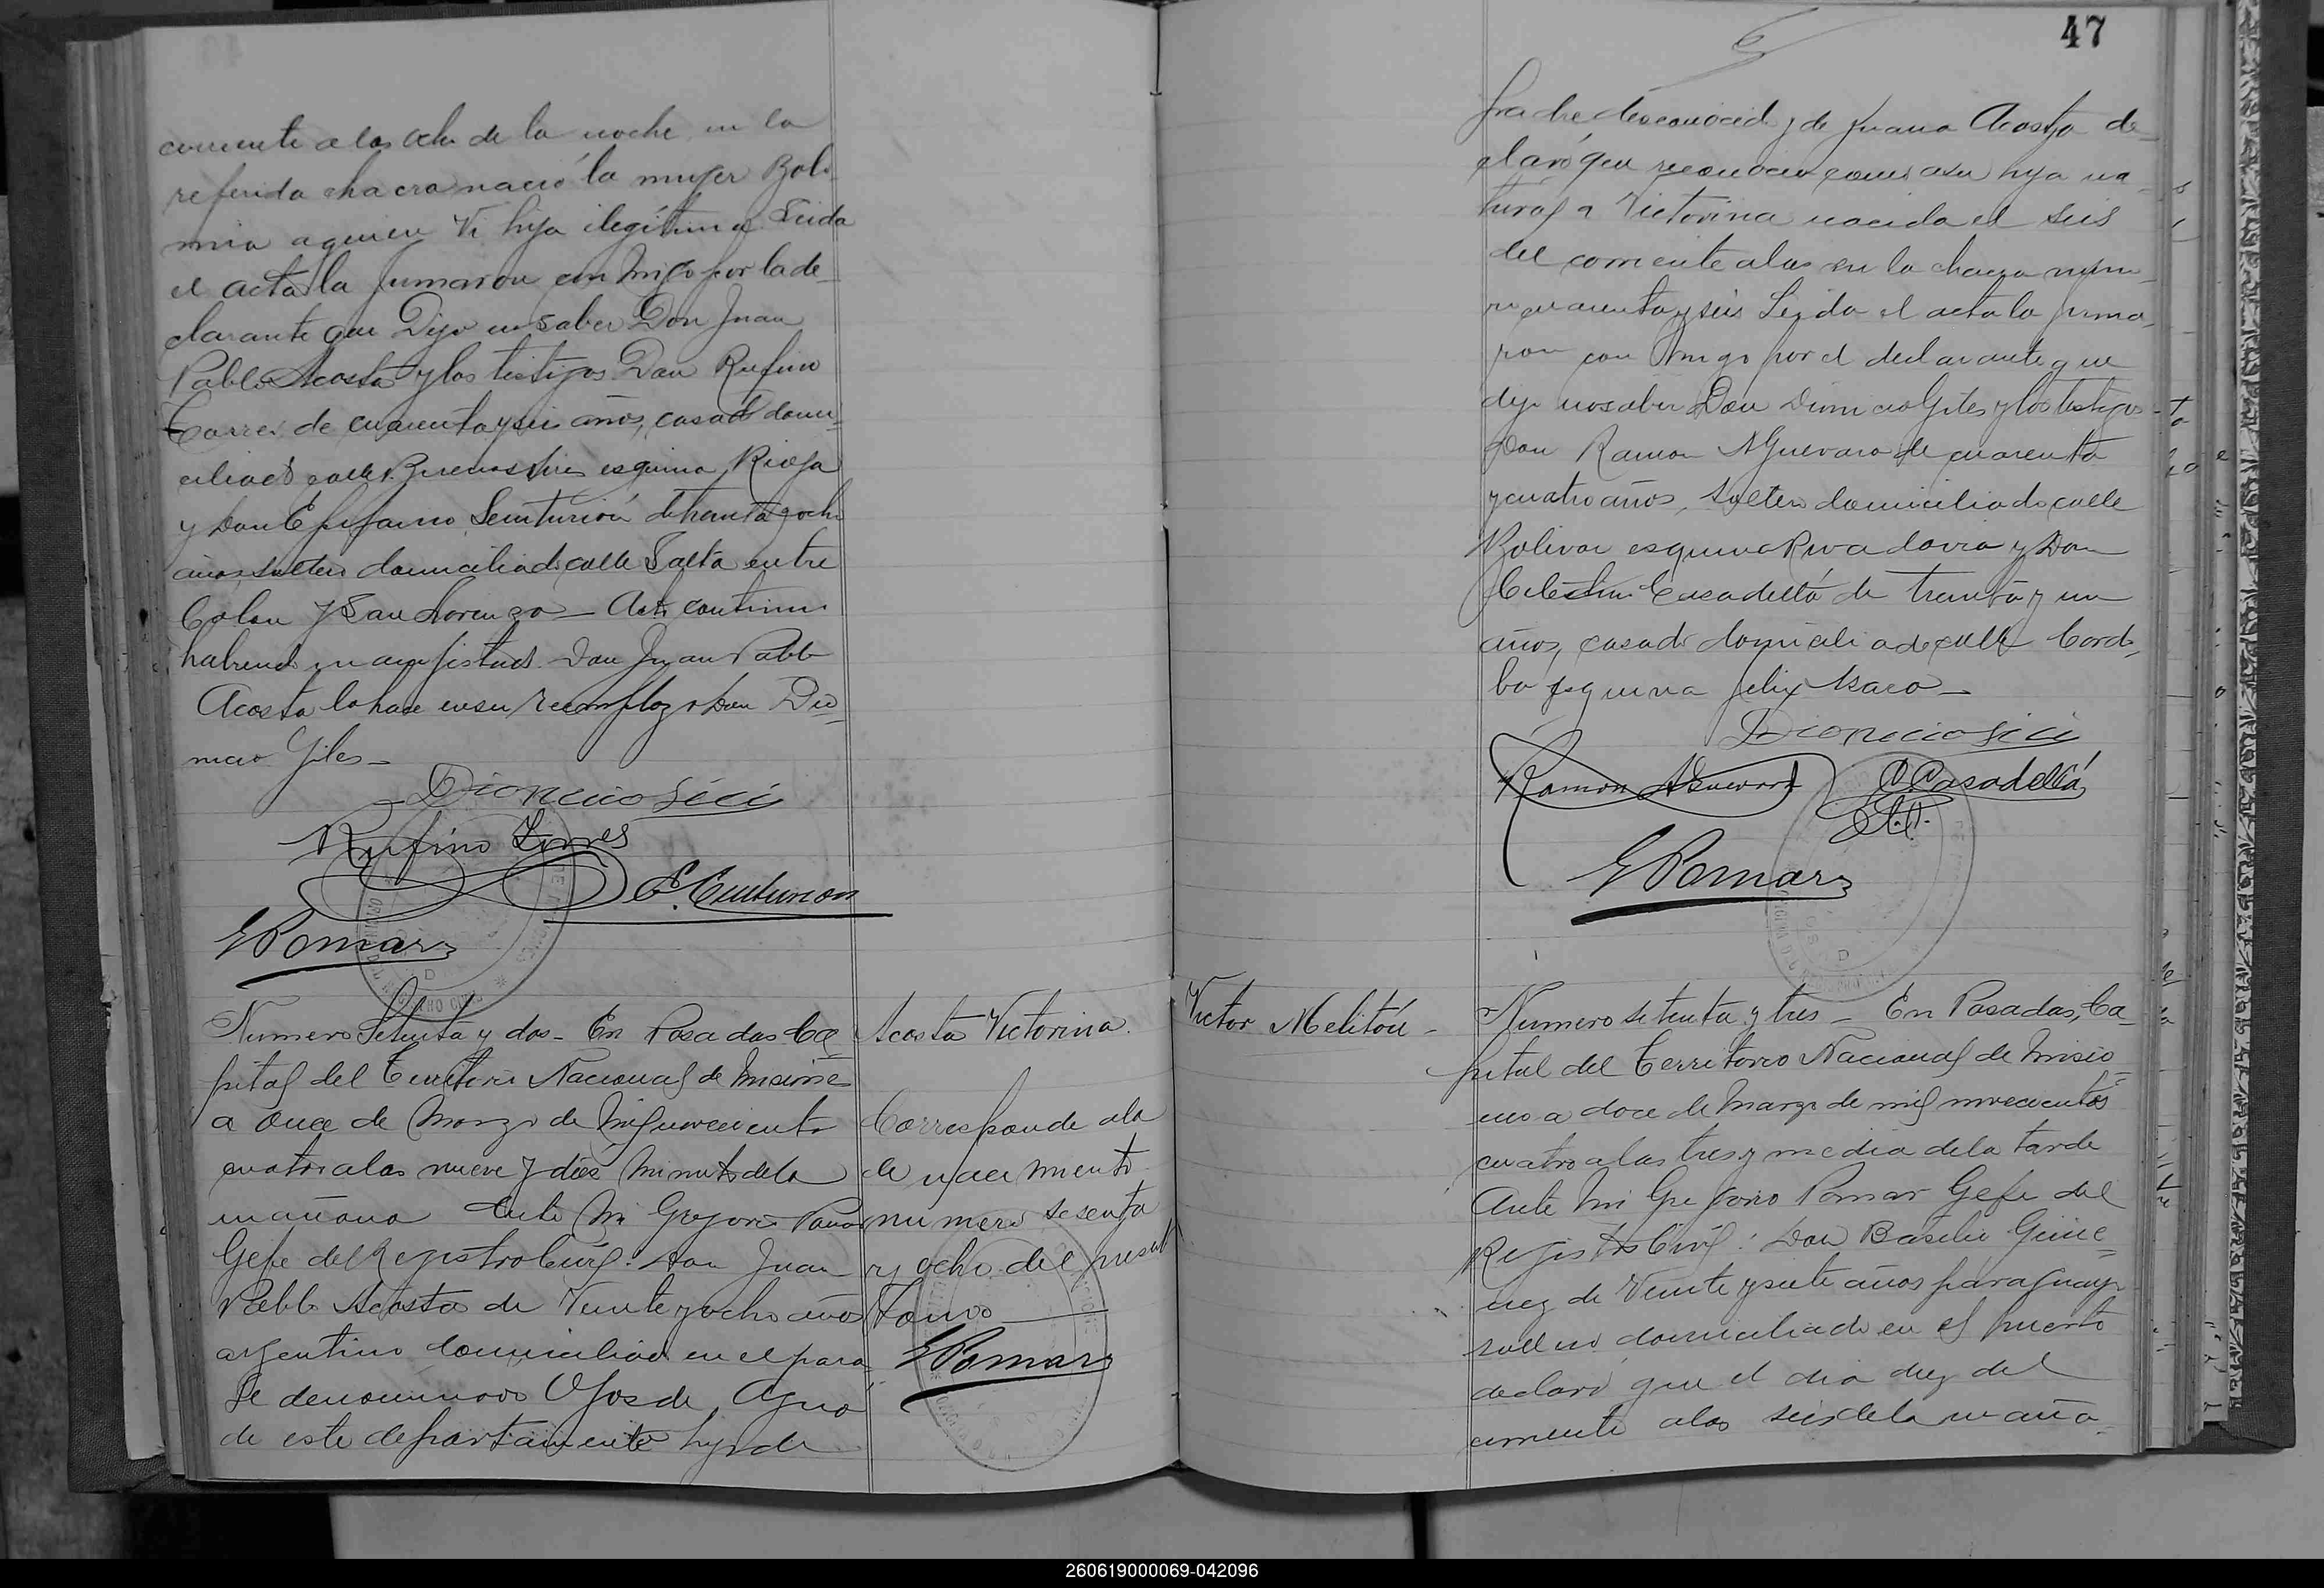 corriente a las ocho de la noche en la
referida chacra nació la mujer Bolo
mia a quien Vi hija ilegítima Leida
el acta la firmaron con migo por la de_
clarante que Dijo no saber Don Juan
Pablo Acosta y los testigos Don Rufino
Torres de cuarenta y seis años, casado domi_
ciliado calle Buenos Aires esquina Rioja
y Don Epifanio Senturión de treinta y ocho
años, soltero domiciliado calle Salta entre
Colon y San Lorenzo _ Acto continuo
habiendo manifestado Don Juan Pablo
Acosta lo hace en su reemplazo Don Dio_
nicio Giles _
Dionicio Gili
Rufino Torres
E. Centurion
G Pomar
Numero Setenta y dos - En Posadas Ca
pital del Territorio Nacional de Misiones
a once de Marzo de Mil novecientos
cuatro a las nueve y diez minutos de la
mañana Ante Mi Gregorio Pomar
Gefe del Registro Civil: Don Juan
Pablo Acosta de Veinte y ocho años
argentino domiciliado en el para
je denominado Ojos de Agua
de este departamento hijo de
Acosta Victorina.
Corresponde a la
de nacimiento
número sesenta
y ocho del presente
tomo
G Pomar
47
padre desconocido y de Juana Acosta de_
claró que reconocia como a su hija na_
tural a Victorina nacida el seis
del corriente a las en la chacra núme_
ro cuarenta y seis Leida el acta la firma_
ron con migo por el declarante que
dijo no saber Don Dionicio Giles y los testigos
Don Ramon A Guevara de cuarenta
y cuatro años, soltero domiciliado calle
Bolivar esquina Rivadavia y Don
Celestino Casadellá de treinta y un
años, casado domiciliado calle Cordo_
ba esquina Felix Azara _
Dionicio Gili
Ramon A Guevara
C Casadellá
G Pomar
Victor Melitón -
Numero setenta y tres _ En Posadas, Ca_
pital del Territorio Nacional de Misio_
nes a doce de Marzo de mil novecientos
cuatro a las tres y media de la tarde
Ante Mi Gregorio Pomar Gefe del
Registro Civil: Don Basilio Gimé_
nez de Veinte y siete años paraguayo
soltero domiciliado en el puerto
declaró que el dia diez del
corriente a las seis de la maña_
260619000069-042096